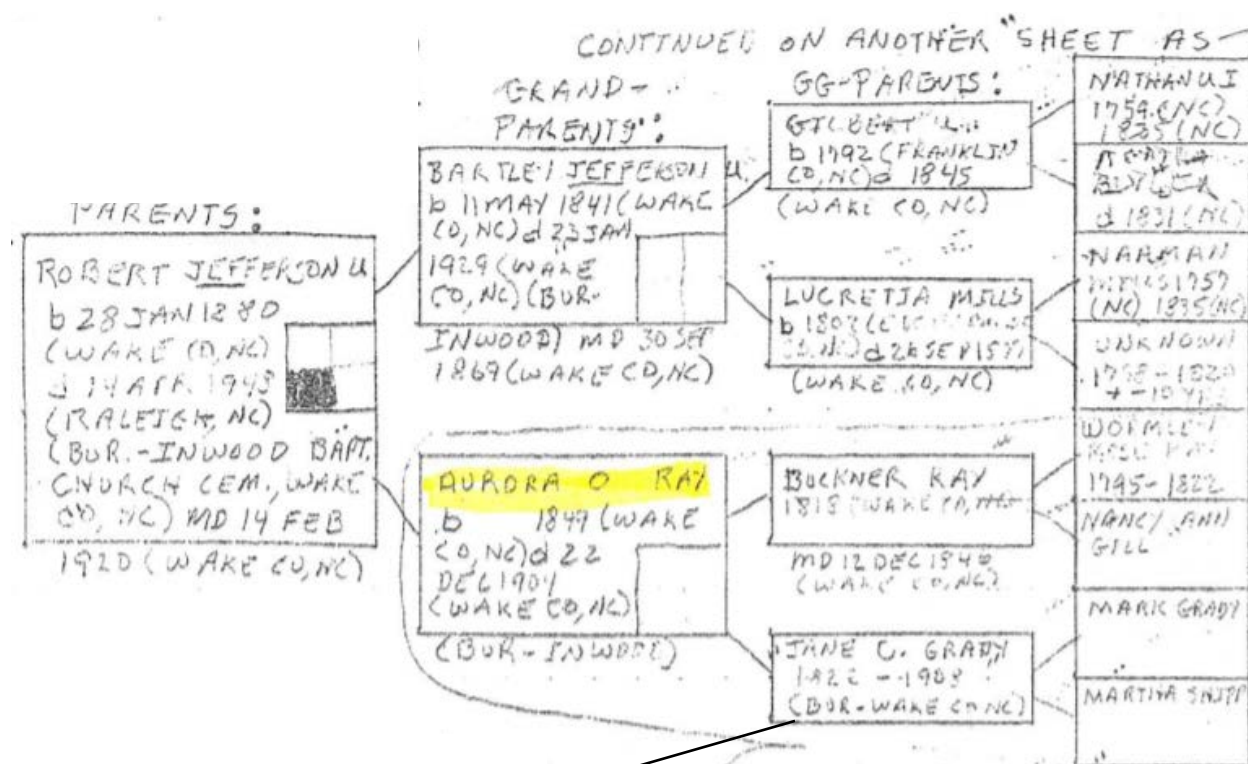 CONTINUED ON ANOTHER "SHEET AS
PARENTS:
ROBERT JEFFERSON U
b 28 JAN 1880
(WAKE CO, NC)
d 14 APR 1948
(RALEIGH, NC)
(BUR.-INWOOD BAPT.
CHURCH CEM., WAKE
CO, NC) MD 14 FEB
1920 (WAKE CO, NC)
GRAND-
PARENTS:
BARTLEY JEFFERSON U.
b 11 MAY 1841 (WAKE
CO, NC) d 23 JAN
1929 (WAKE
CO, NC) (BUR-
INWOOD) MD 30 SEP
1869 (WAKE CO, NC)
AURORA O RAY
b 1849 (WAKE
CO, NC) d 22
DEC 1904
(WAKE CO, NC)
(BUR-INWOOD)
GG-PARENTS:
GILBERT U.
b 1792 (FRANKLIN
CO, NC) d 1845
(WAKE CO, NC)
LUCRETIA MILLS
b 1803
CO, NC) d 26 SEP
(WAKE CO, NC)
BUCKNER RAY
1818 (WAKE CO, NC)
MD 12 DEC 1846
(WAKE CO, NC)
JANE C. GRADY
1822 - 1903
(BUR-WAKE CO NC)
NATHAN U I
1759 (NC)
1835 (NC)
d 1831 (NC)
NAAMAN
MILLS 1757
(NC) 1835 (NC)
UNKNOWN
1758 - 1820
+ - 10 YRS
1795 - 1822
NANCY ANN
GILL
MARK GRADY
MARTHA SHIPP